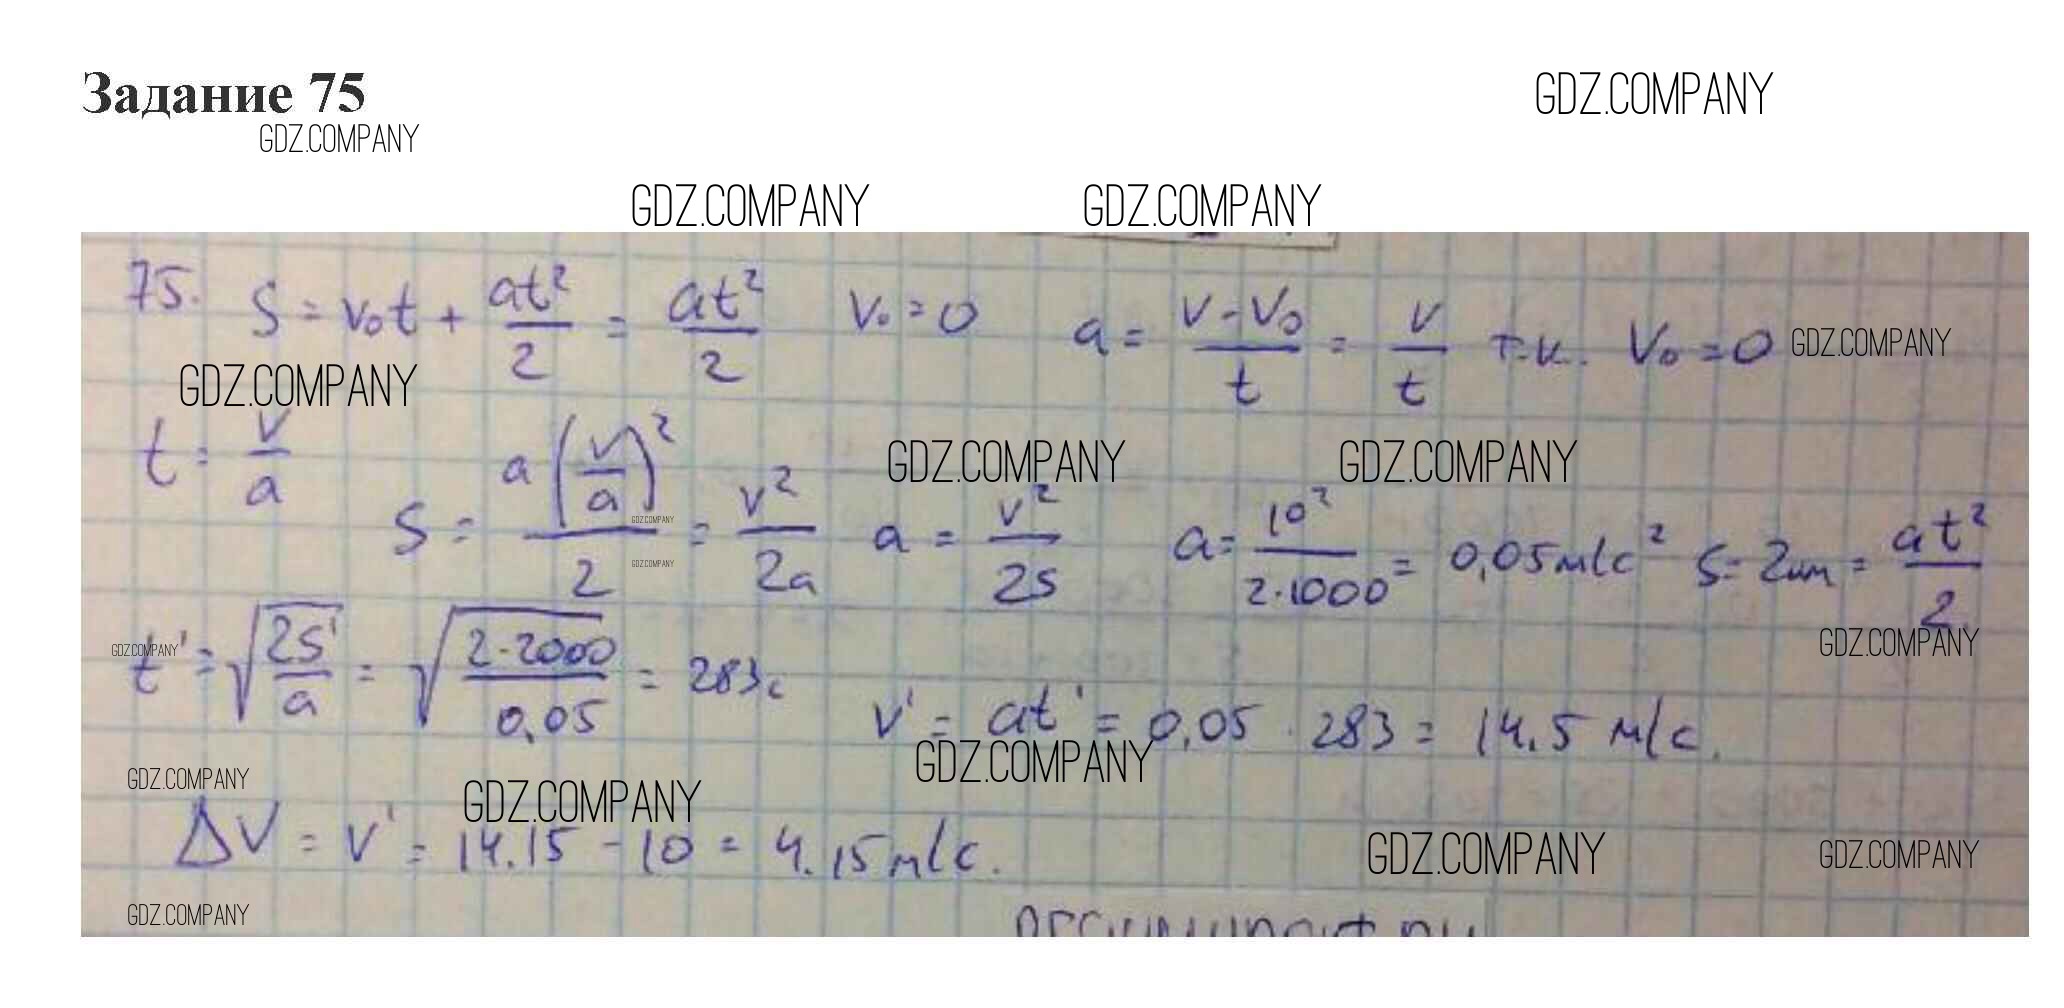 Задание 75
GDZ.COMPANY
GDZ.COMPANY
GDZ.COMPANY GDZ.COMPANY
75. S = v₀t + at²/2 = at²/2 V₀ = 0 a = (V - V₀)/t = V/t т.к. V₀ = 0 GDZ.COMPANY
GDZ.COMPANY
GDZ.COMPANY GDZ.COMPANY
t = v/a S = a(v/a)²/2 = v²/2a a = v²/2s a = 10²/2·1000 = 0,05 м/с² S = 2км = at²/2
GDZ.COMPANY
GDZ.COMPANY
GDZ.COMPANY GDZ.COMPANY
t' = √(2S'/a) = √(2·2000/0,05) = 283с v' = at' = 0,05 · 283 = 14.5 м/с.
GDZ.COMPANY GDZ.COMPANY
GDZ.COMPANY
ΔV = V' = 14.15 - 10 = 4.15 м/с.
GDZ.COMPANY GDZ.COMPANY
GDZ.COMPANY